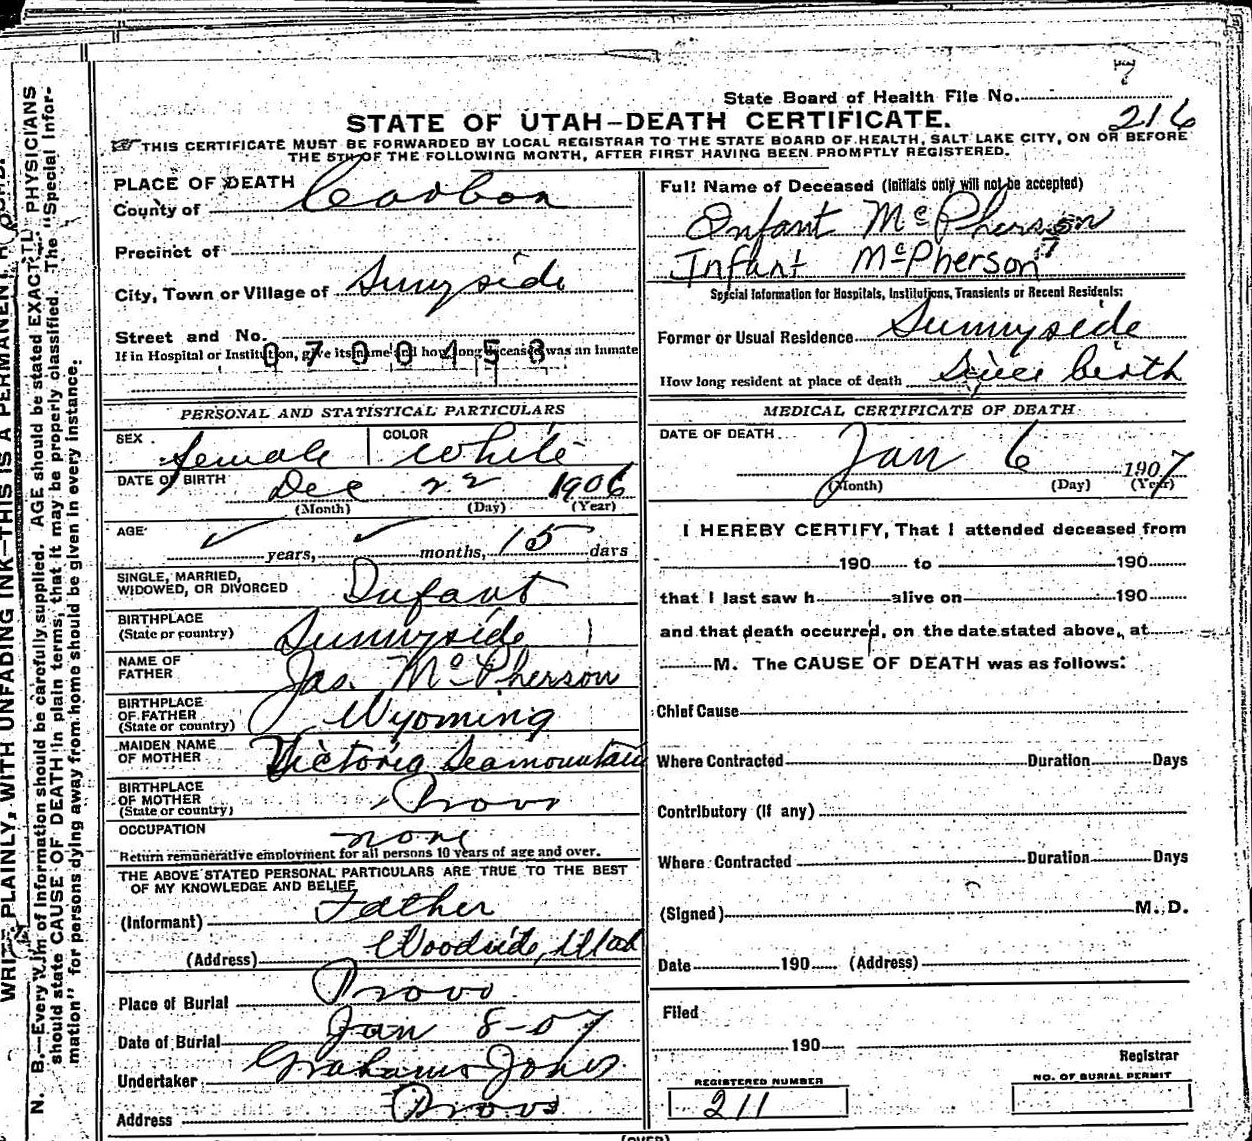 7
State Board of Health File No.
216
STATE OF UTAH—DEATH CERTIFICATE.
☞ THIS CERTIFICATE MUST BE FORWARDED BY LOCAL REGISTRAR TO THE STATE BOARD OF HEALTH, SALT LAKE CITY, ON OR BEFORE
THE 5TH OF THE FOLLOWING MONTH, AFTER FIRST HAVING BEEN PROMPTLY REGISTERED.
PLACE OF DEATH
County of Carbon
Precinct of
City, Town or Village of Sunnyside
Street and No.
If in Hospital or Institution, give its name and how long deceased was an inmate
0700458
Full Name of Deceased (Initials only will not be accepted)
Infant McPherson
Infant McPherson
Special Information for Hospitals, Institutions, Transients or Recent Residents:
Former or Usual Residence Sunnyside
How long resident at place of death Since birth
PERSONAL AND STATISTICAL PARTICULARS
SEX female COLOR White
DATE OF BIRTH Dec 22 1906
(Month) (Day) (Year)
AGE ✓ years, ✓ months, 15 days
SINGLE, MARRIED,
WIDOWED, OR DIVORCED Infant
BIRTHPLACE
(State or country) Sunnyside
NAME OF
FATHER Jas. McPherson
BIRTHPLACE
OF FATHER
(State or country) Wyoming
MAIDEN NAME
OF MOTHER Victoria Seamountain
BIRTHPLACE
OF MOTHER
(State or country) Provo
OCCUPATION none
Return remunerative employment for all persons 10 years of age and over.
THE ABOVE STATED PERSONAL PARTICULARS ARE TRUE TO THE BEST
OF MY KNOWLEDGE AND BELIEF
(Informant) Father
(Address) Woodside, Utah
Place of Burial Provo
Date of Burial Jan 8-07
Undertaker Grahams Jones
Address Provo
MEDICAL CERTIFICATE OF DEATH
DATE OF DEATH Jan 6 1907
(Month) (Day) (Year)
I HEREBY CERTIFY, That I attended deceased from
190 to 190
that I last saw h alive on 190
and that death occurred, on the date stated above, at
M. The CAUSE OF DEATH was as follows:
Chief Cause
Where Contracted Duration Days
Contributory (if any)
Where Contracted Duration Days
(Signed) M. D.
Date 190 (Address)
Filed
190
Registrar
REGISTERED NUMBER
211
NO. OF BURIAL PERMIT
(OVER)
WRITE PLAINLY, WITH UNFADING INK—THIS IS A PERMANENT
N. B.—Every item of information should be carefully supplied. AGE should be stated EXACTLY. PHYSICIANS
should state CAUSE OF DEATH in plain terms, that it may be properly classified. The "Special Infor-
mation" for persons dying away from home should be given in every instance.